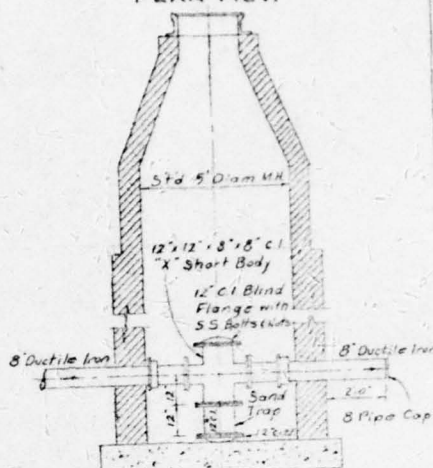 PLAN VIEW
Std 5' Diam M.H.
12" x 12" x 8" x 8" C.I.
"X" Short Body
12" C.I. Blind
Flange with
S.S. Bolts & Nuts
8" Ductile Iron
8" Ductile Iron
Sand
Trap
2'-0"
8" Pipe Cap
12"
12"